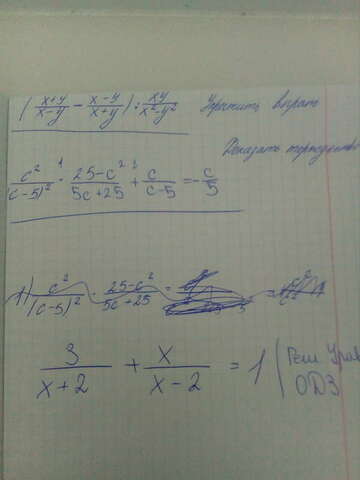 (x+y/x-y - x-y/x+y) : xy/x²-y² Упростить выраж
Доказать тождество
c²/(c-5)² · 25-c²/5c+25 + c/c-5 = -c/5
1) c²/(c-5)² · 25-c²/5c+25 =
3/x+2 + x/x-2 = 1 (Реш Урав
ОДЗ